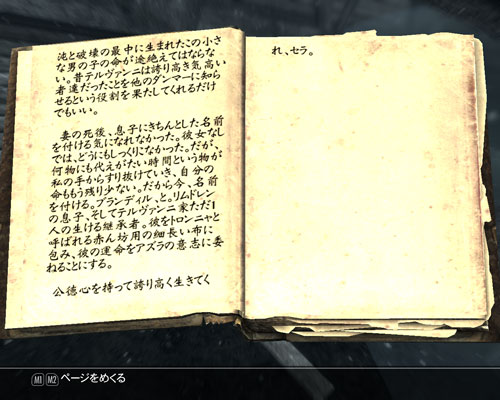 沌と破壊の最中に生まれたこの小さ
な男の子の命が途絶えてはならな
い。昔テルヴァンニは誇り高き気高い
者達だったことを他のダンマーに知ら
せるという役割を果たしてくれるだけ
でもいい。
妻の死後、息子にきちんとした名前
を付ける気になれなかった。彼女なし
では、どうにもしっくりこなかった。だが、
何物にも代えがたい時間という物が
私の手からすり抜けていき、自分の
命ももう残り少ない。だから今、名前
を付ける。ブランディル、と。リムドレン
の息子、そしてテルヴァンニ家ただ1
人の生ける継承者。彼をトロンニャと
呼ばれる赤ん坊用の細長い布に
包み、彼の運命をアズラの意志に委
ねることにする。
公徳心を持って誇り高く生きてく
れ、セラ。
M1 M2 ページをめくる